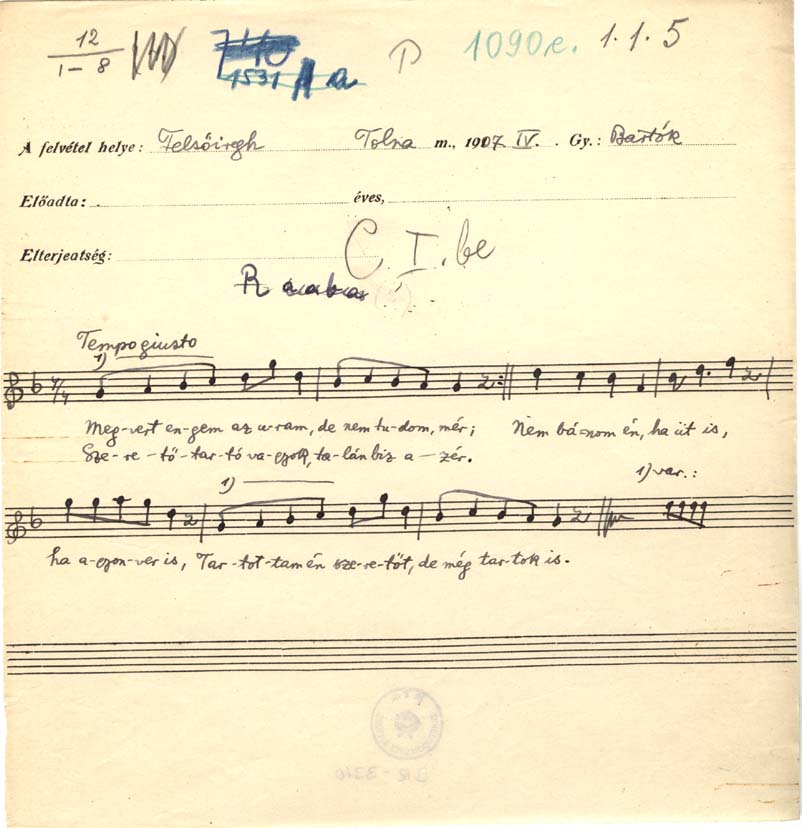 12
1–8
1531 a
1090e. 1. 1. 5
A felvétel helye: Felsőiregh Tolna m., 1907 IV. . Gy.: Bartók
Előadta: éves,
Elterjeatség:
C. I. be
R a a b a
Tempo giusto
1)
7/4
Meg-vert en-gem az u-ram, de nem tu-dom, mér; Nem bá-nom én, ha üt is,
Sze-re-tő-tar-tó va-gyok, ta-lán biz a-zér.
1) 1) var.:
ha a-gyon-ver is, Tar-tot-tam én sze-re-tőt, de még tar-tok is.